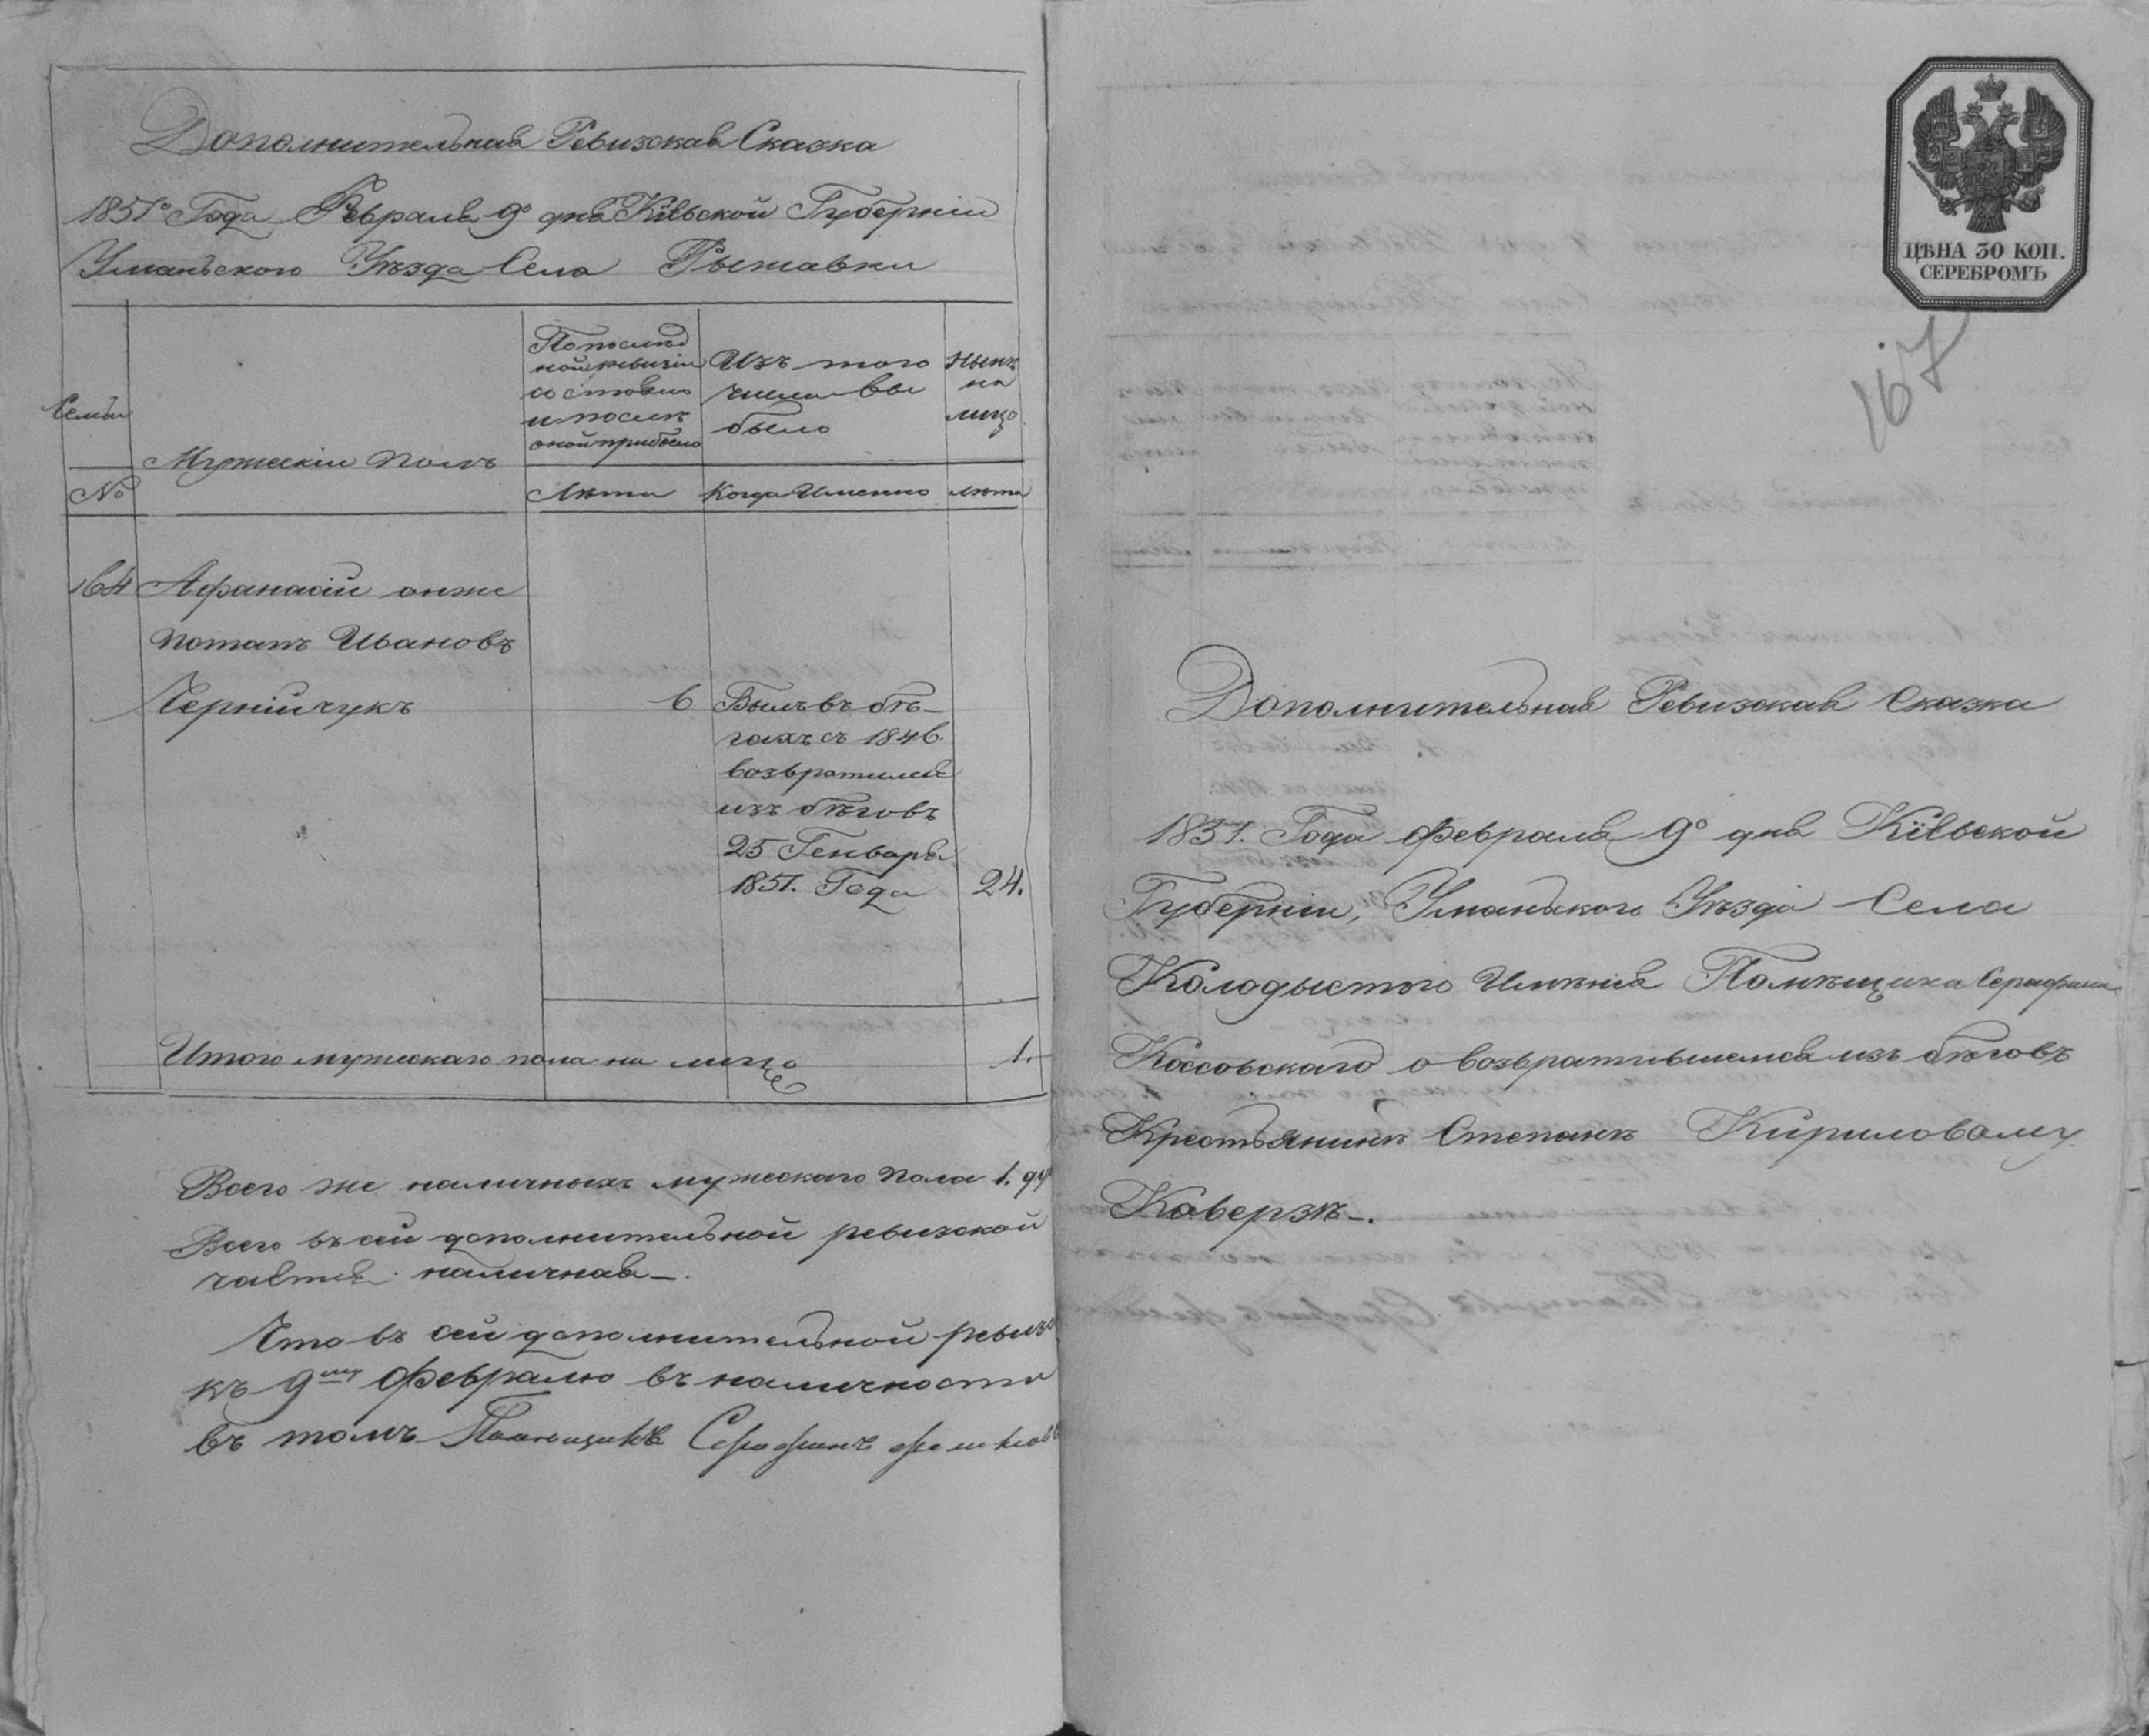 Дополнительная Ревизская Сказка
1851º Года Февраля 9º дня Кіевской Губерніи
Уманьского Уезда Села Рыжавки
Семьи
№
Мужескій полъ
По послед
ной ревизіи
состояло
и после
оной прибыло
Лета
Изъ того
числа вы
было
Когда Именно
ныне
на
лицо
лета
164 Афанасій онже
Потапъ Ивановъ
Чернійчукъ 6 Былъ въ бѣ-
гахъ съ 1846.
возвратился
изъ бѣговъ
25 Генваря
1851. Года 24.
Итого мужескаго пола на лицо 1.
Всего же наличныхъ мужескаго пола 1. ду
Всего въ сей дополнительной ревизской
наличная.
Что въ сей дополнительной ревиз
къ 9му Февралю въ наличности
въ томъ Помещикъ Серафинъ
ЦѢНА 30 КОП.
СЕРЕБРОМЪ
167
Дополнительная Ревизская Сказка
1851. Года Февраля 9º дня Кіевской
Губерніи, Уманьского Уезда Села
Колодыстого Именія Помещика Серафина
Коссовского о возвратившемся изъ бѣговъ
Крестьянине Степане Кириловому
Каверзе.